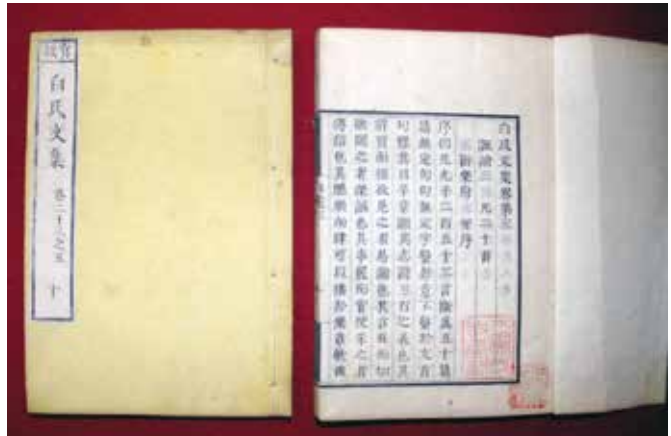 官版
白氏文集 卷二十之五 十
白氏文集卷第三
諷諭 凡二十首
新樂府 并序
序曰凡九千二百五十二言斷為五十篇
篇無定句句無定字繫於意不繫於文首
句標其目卒章顯其志詩三百之義也其
辭質而徑欲見之者易諭也其言直而切
欲聞之者深誡也其事覈而實使采之者
傳信也其體順而肆可以播於樂章歌曲